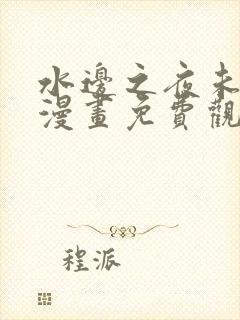 水邊之夜未
漫畫免費觀
程派